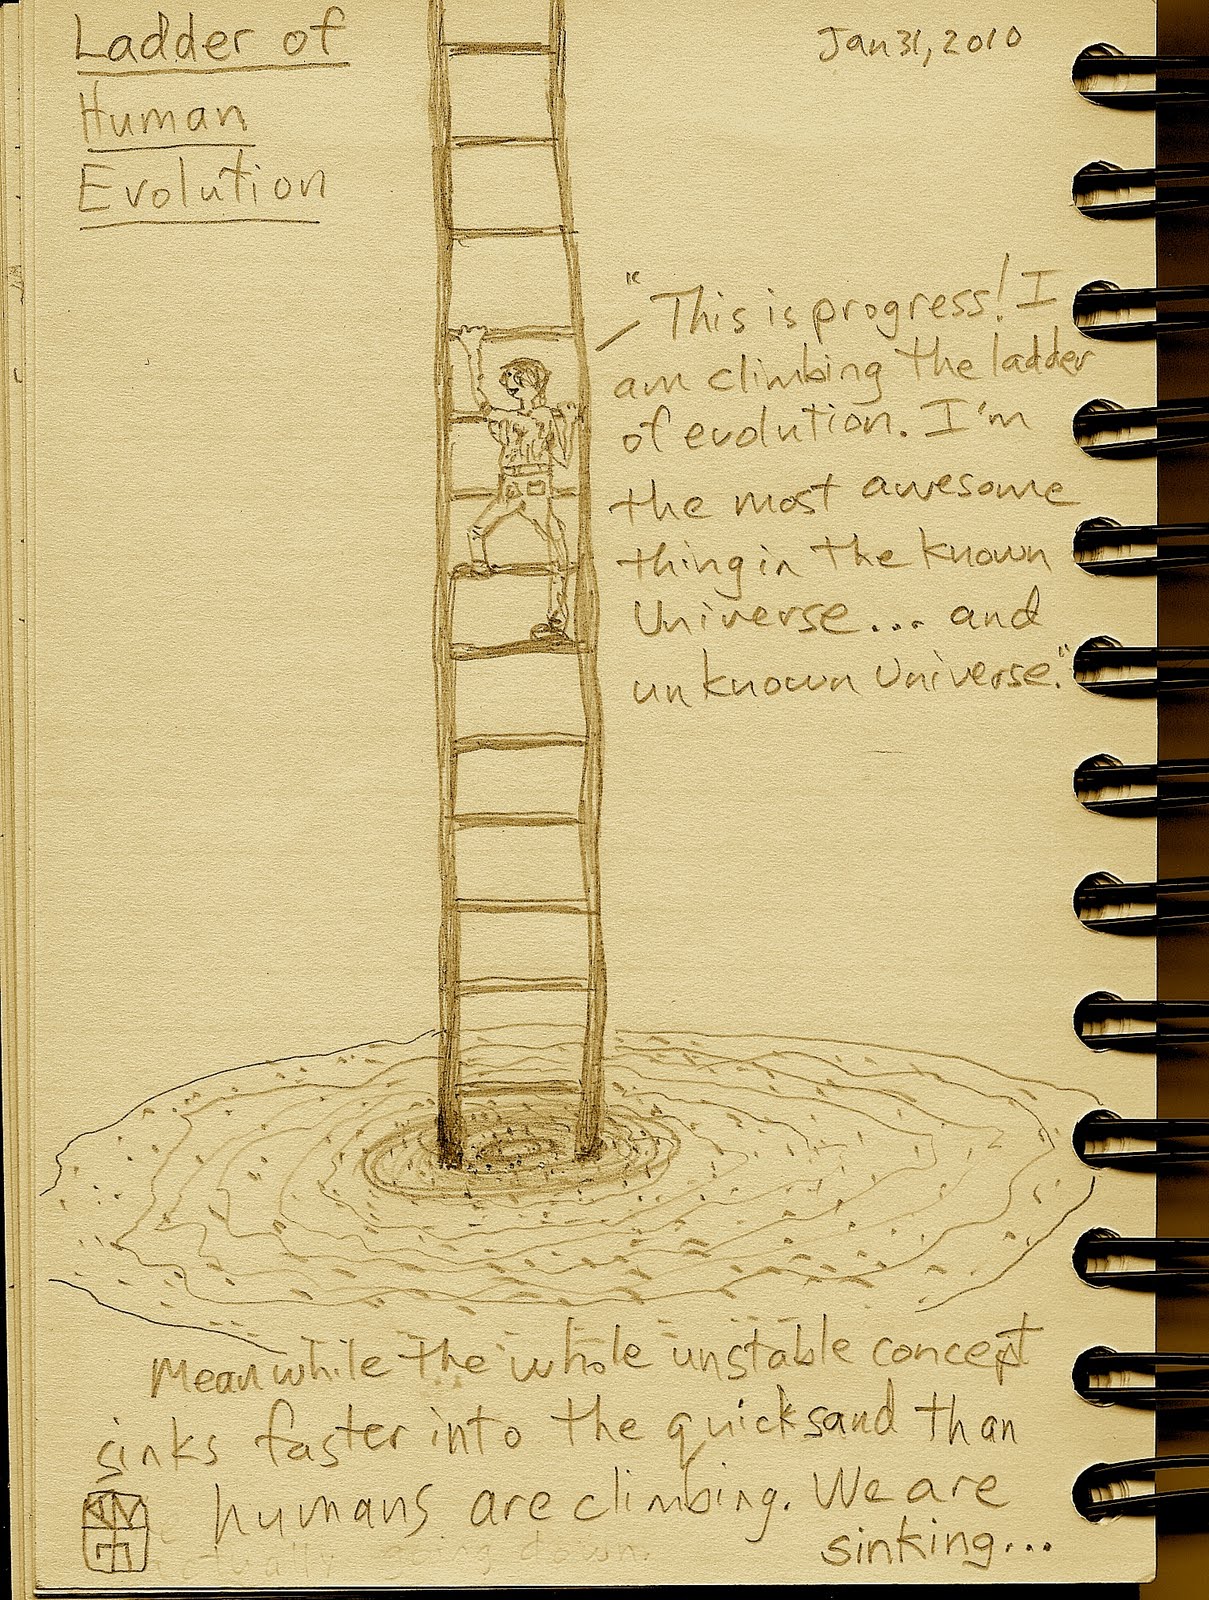 Ladder of
Human
Evolution
Jan 31, 2010
"This is progress! I
am climbing the ladder
of evolution. I'm
the most awesome
thing in the known
Universe... and
unknown Universe."
Meanwhile the whole unstable concept
sinks faster into the quicksand than
humans are climbing. We are
actually going down.
sinking...